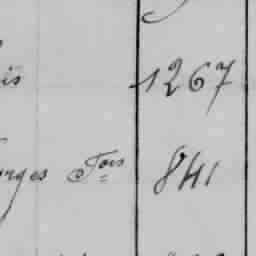 is 1267
rges Fois 841